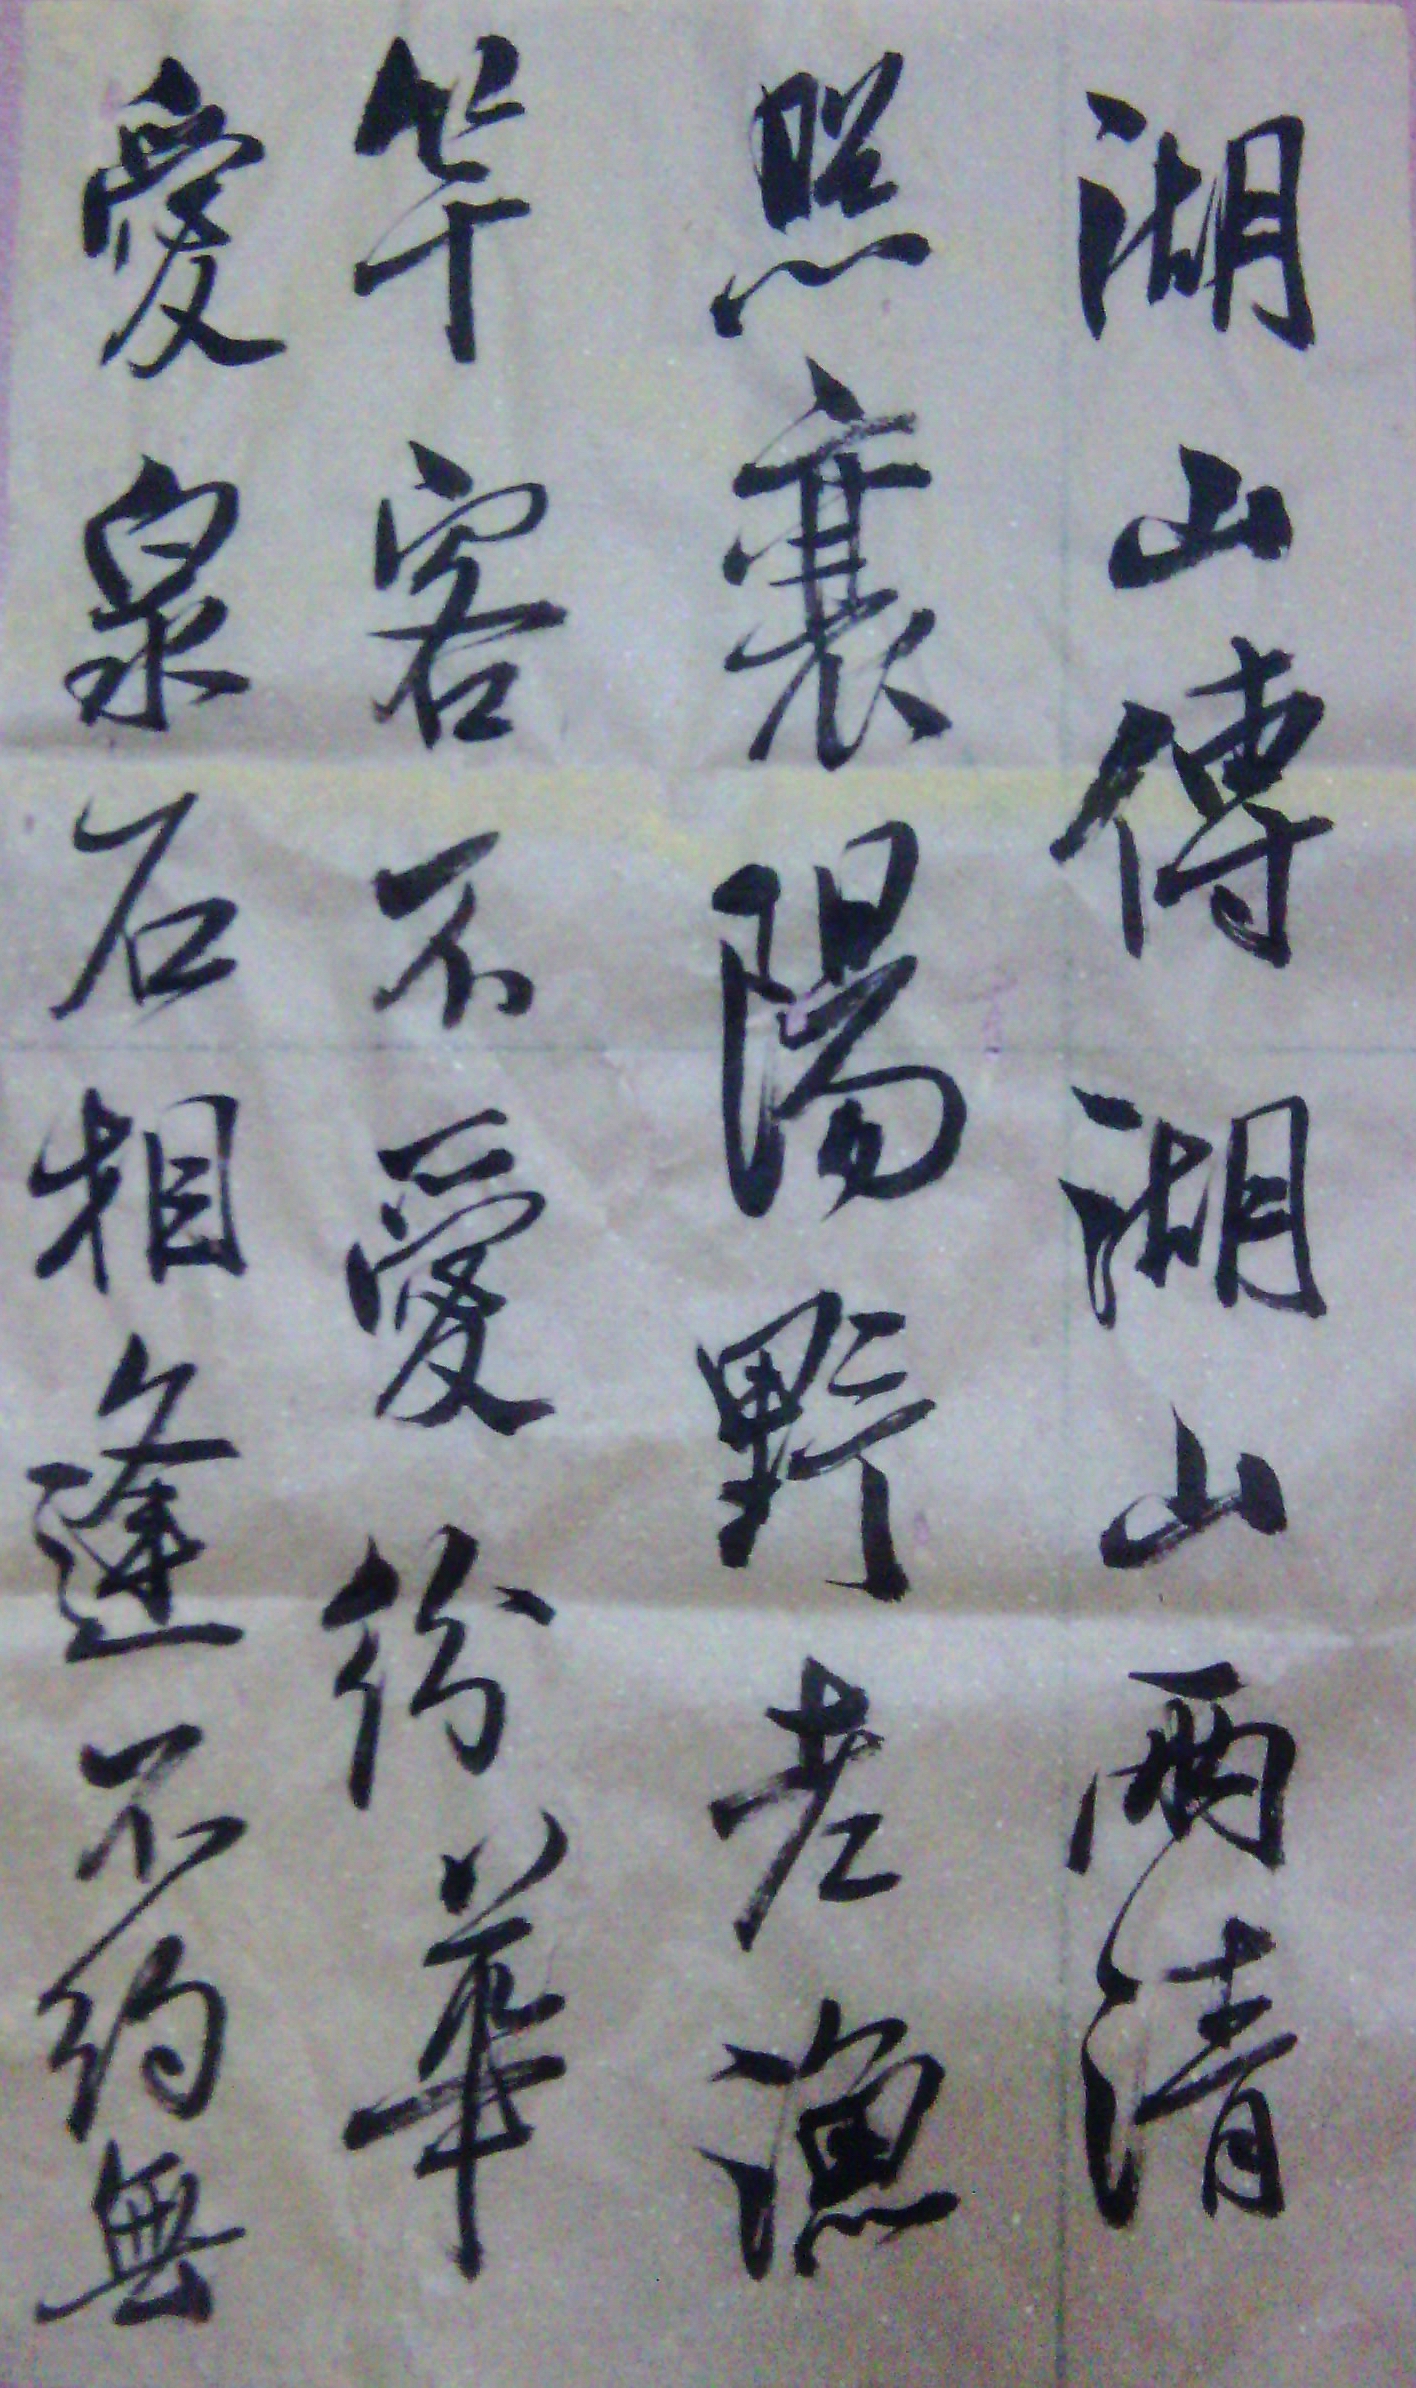 湖山傳湖山兩清
照襄陽野老漁
竿客不愛紛華
愛泉石相逢不約無